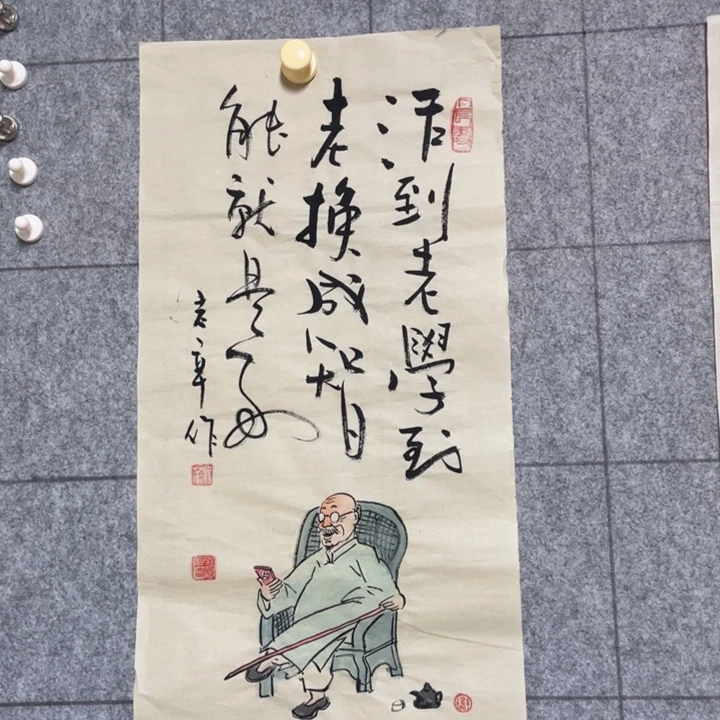 活到老學到
老換成智
能就是
老章作